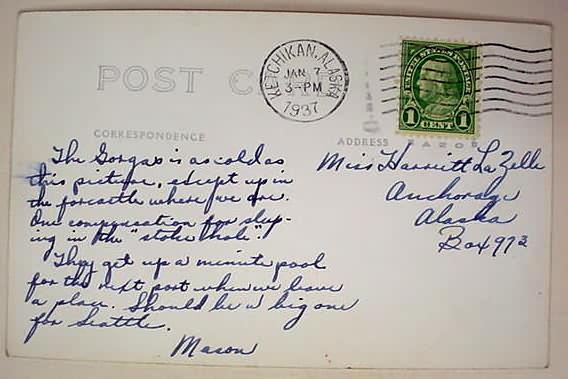 POST C
KETCHIKAN, ALASKA
JAN 7
3-PM
1937
UNITED STATES POSTAGE
1 CENT 1
CORRESPONDENCE
ADDRESS
The Gorgas is as cold as
this picture, except up in
the forcastle where we are.
One compensation for sleep-
ing in the "stoke hole".
They get up a minute pool
for the next port when we leave
a place. Should be a big one
for Seattle.
Mason
Miss Harriett LaZelle
Anchorage
Alaska
Box 973